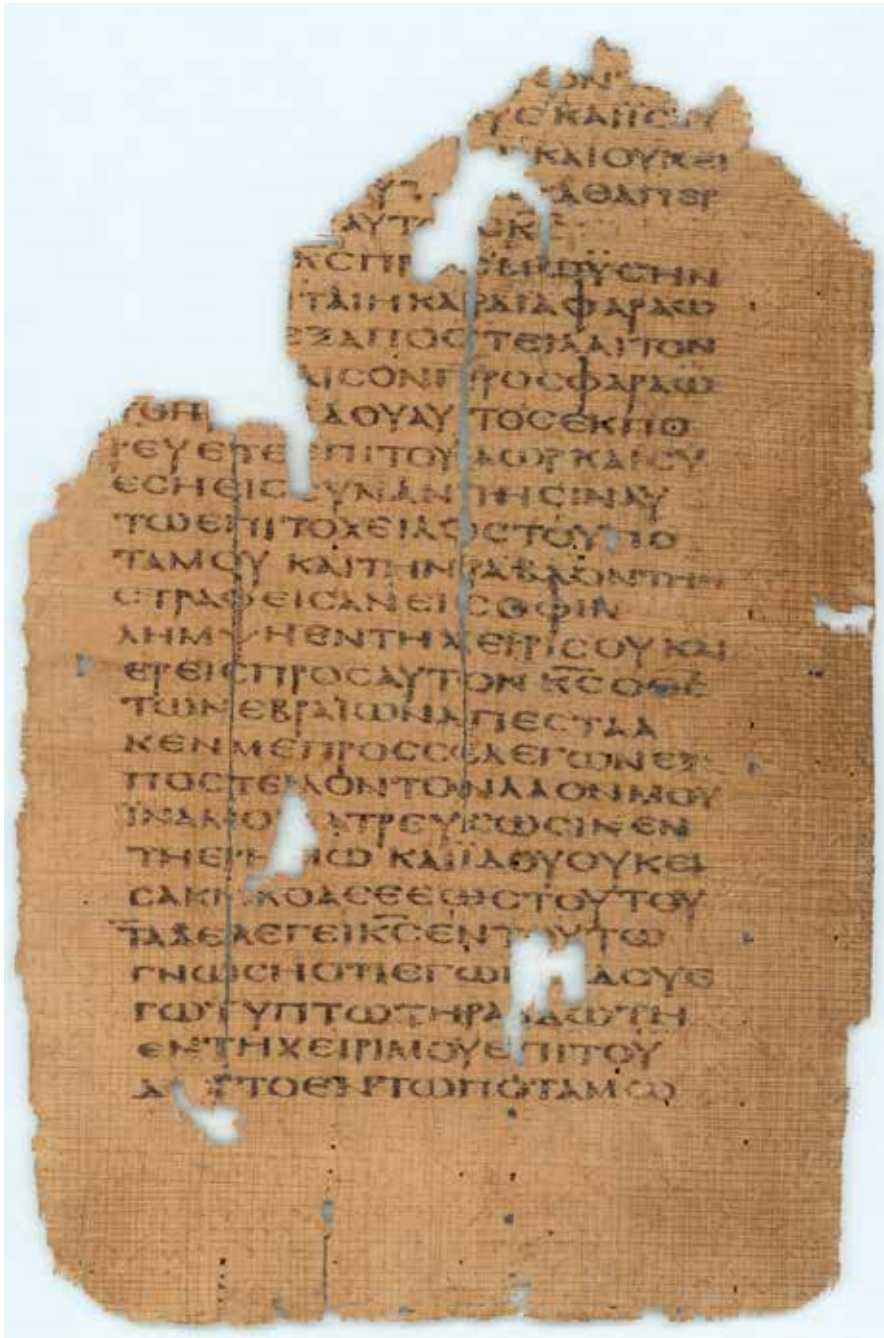 ΕΩΝ
ΥϹ ΚΑΙΙϹΧΥ
ΚΑΙΟΥΚΕΙ
ΥΤ ΑΘΑΠΕΡ
ΑΥΤ ϹΚϹ
ΚϹΠΡΟϹΜΩΥϹΗΝ
ΤΑΙΗΚΑΡΔΙΑΦΑΡΑΩ
ΕΞΑΠΟϹΤΕΙΛΑΙΤΟΝ
ΑΙϹΟΝΠΡΟϹΦΑΡΑΩ
ΤΟΠ ΔΟΥΑΥΤΟϹΕΚΠΟ
ΡΕΥΕΤΕΕΠΙΤΟΥΔΩΡΚΑΙϹΥ
ΕϹΗΕΙϹϹΥΝΑΝΤΗϹΙΝΑΥ
ΤΩΕΠΙΤΟΧΕΙΛΟϹΤΟΥΠΟ
ΤΑΜΟΥ ΚΑΙΤΗΝΡΑΒΔΟΝΤΗΝ
ϹΤΡΑΦΕΙϹΑΝΕΙϹΟΦΙΝ
ΛΗΜΨΗΕΝΤΗΧΕΙΡΙϹΟΥΚΑΙ
ΕΡΕΙϹΠΡΟϹΑΥΤΟΝ Κ̅Ϲ̅ΟΘ̅Ϲ̅
ΤΩΝΕΒΡΑΪΩΝΑΠΕϹΤΑΛ
ΚΕΝΜΕΠΡΟϹϹΕΛΕΓΩΝΕΞ
ΠΟϹΤΕΙΛΟΝΤΟΝΛΑΟΝΜΟΥ
ΪΝΑΜΟΙ ΑΤΡΕΥϹΩϹΙΝΕΝ
ΤΗΕΡΗΜΩ ΚΑΙΙΔΟΥΟΥΚΕΙ
ϹΑΚΗΚΟΑϹΕΕΩϹΤΟΥΤΟΥ
ΤΑΔΕΛΕΓΕΙΚ̅Ϲ̅ΕΝΤΟΥΤΩ
ΓΝΩϹΗΟΤΙΕΓΩ ΔΟΥΕ
ΓΩΤΥΠΤΩΤΗΡΑΒΔΩΤΗ
ΕΝΤΗΧΕΙΡΙΜΟΥΕΠΙΤΟΥ
Δ ΤΟΕΝΤΩΠΟΤΑΜΩ